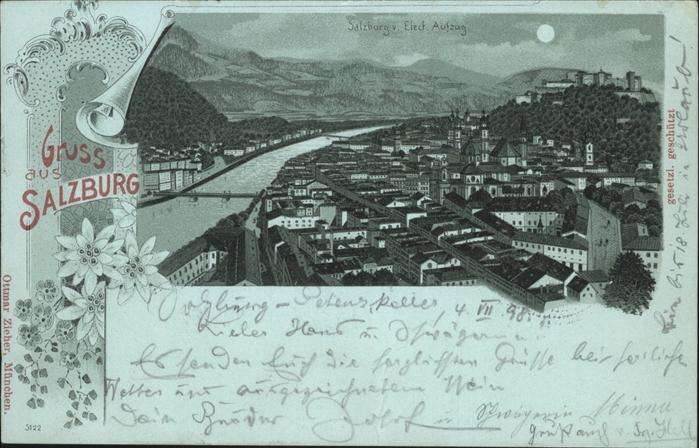 Salzburg v. Elect. Aufzug
Gruss
aus
SALZBURG
gesetzl. geschützt
Ottmar Zieher, München.
5122
Salzburg - Peterskeller 4. VII 98.
Liebes Hans u Schwägerin
Es senden Euch die herzlichsten Grüsse bei herrlichem
Wetter und ausgezeichnetem Wein
Dein Bruder Adolf u Schwägerin Minna
Gruß auch